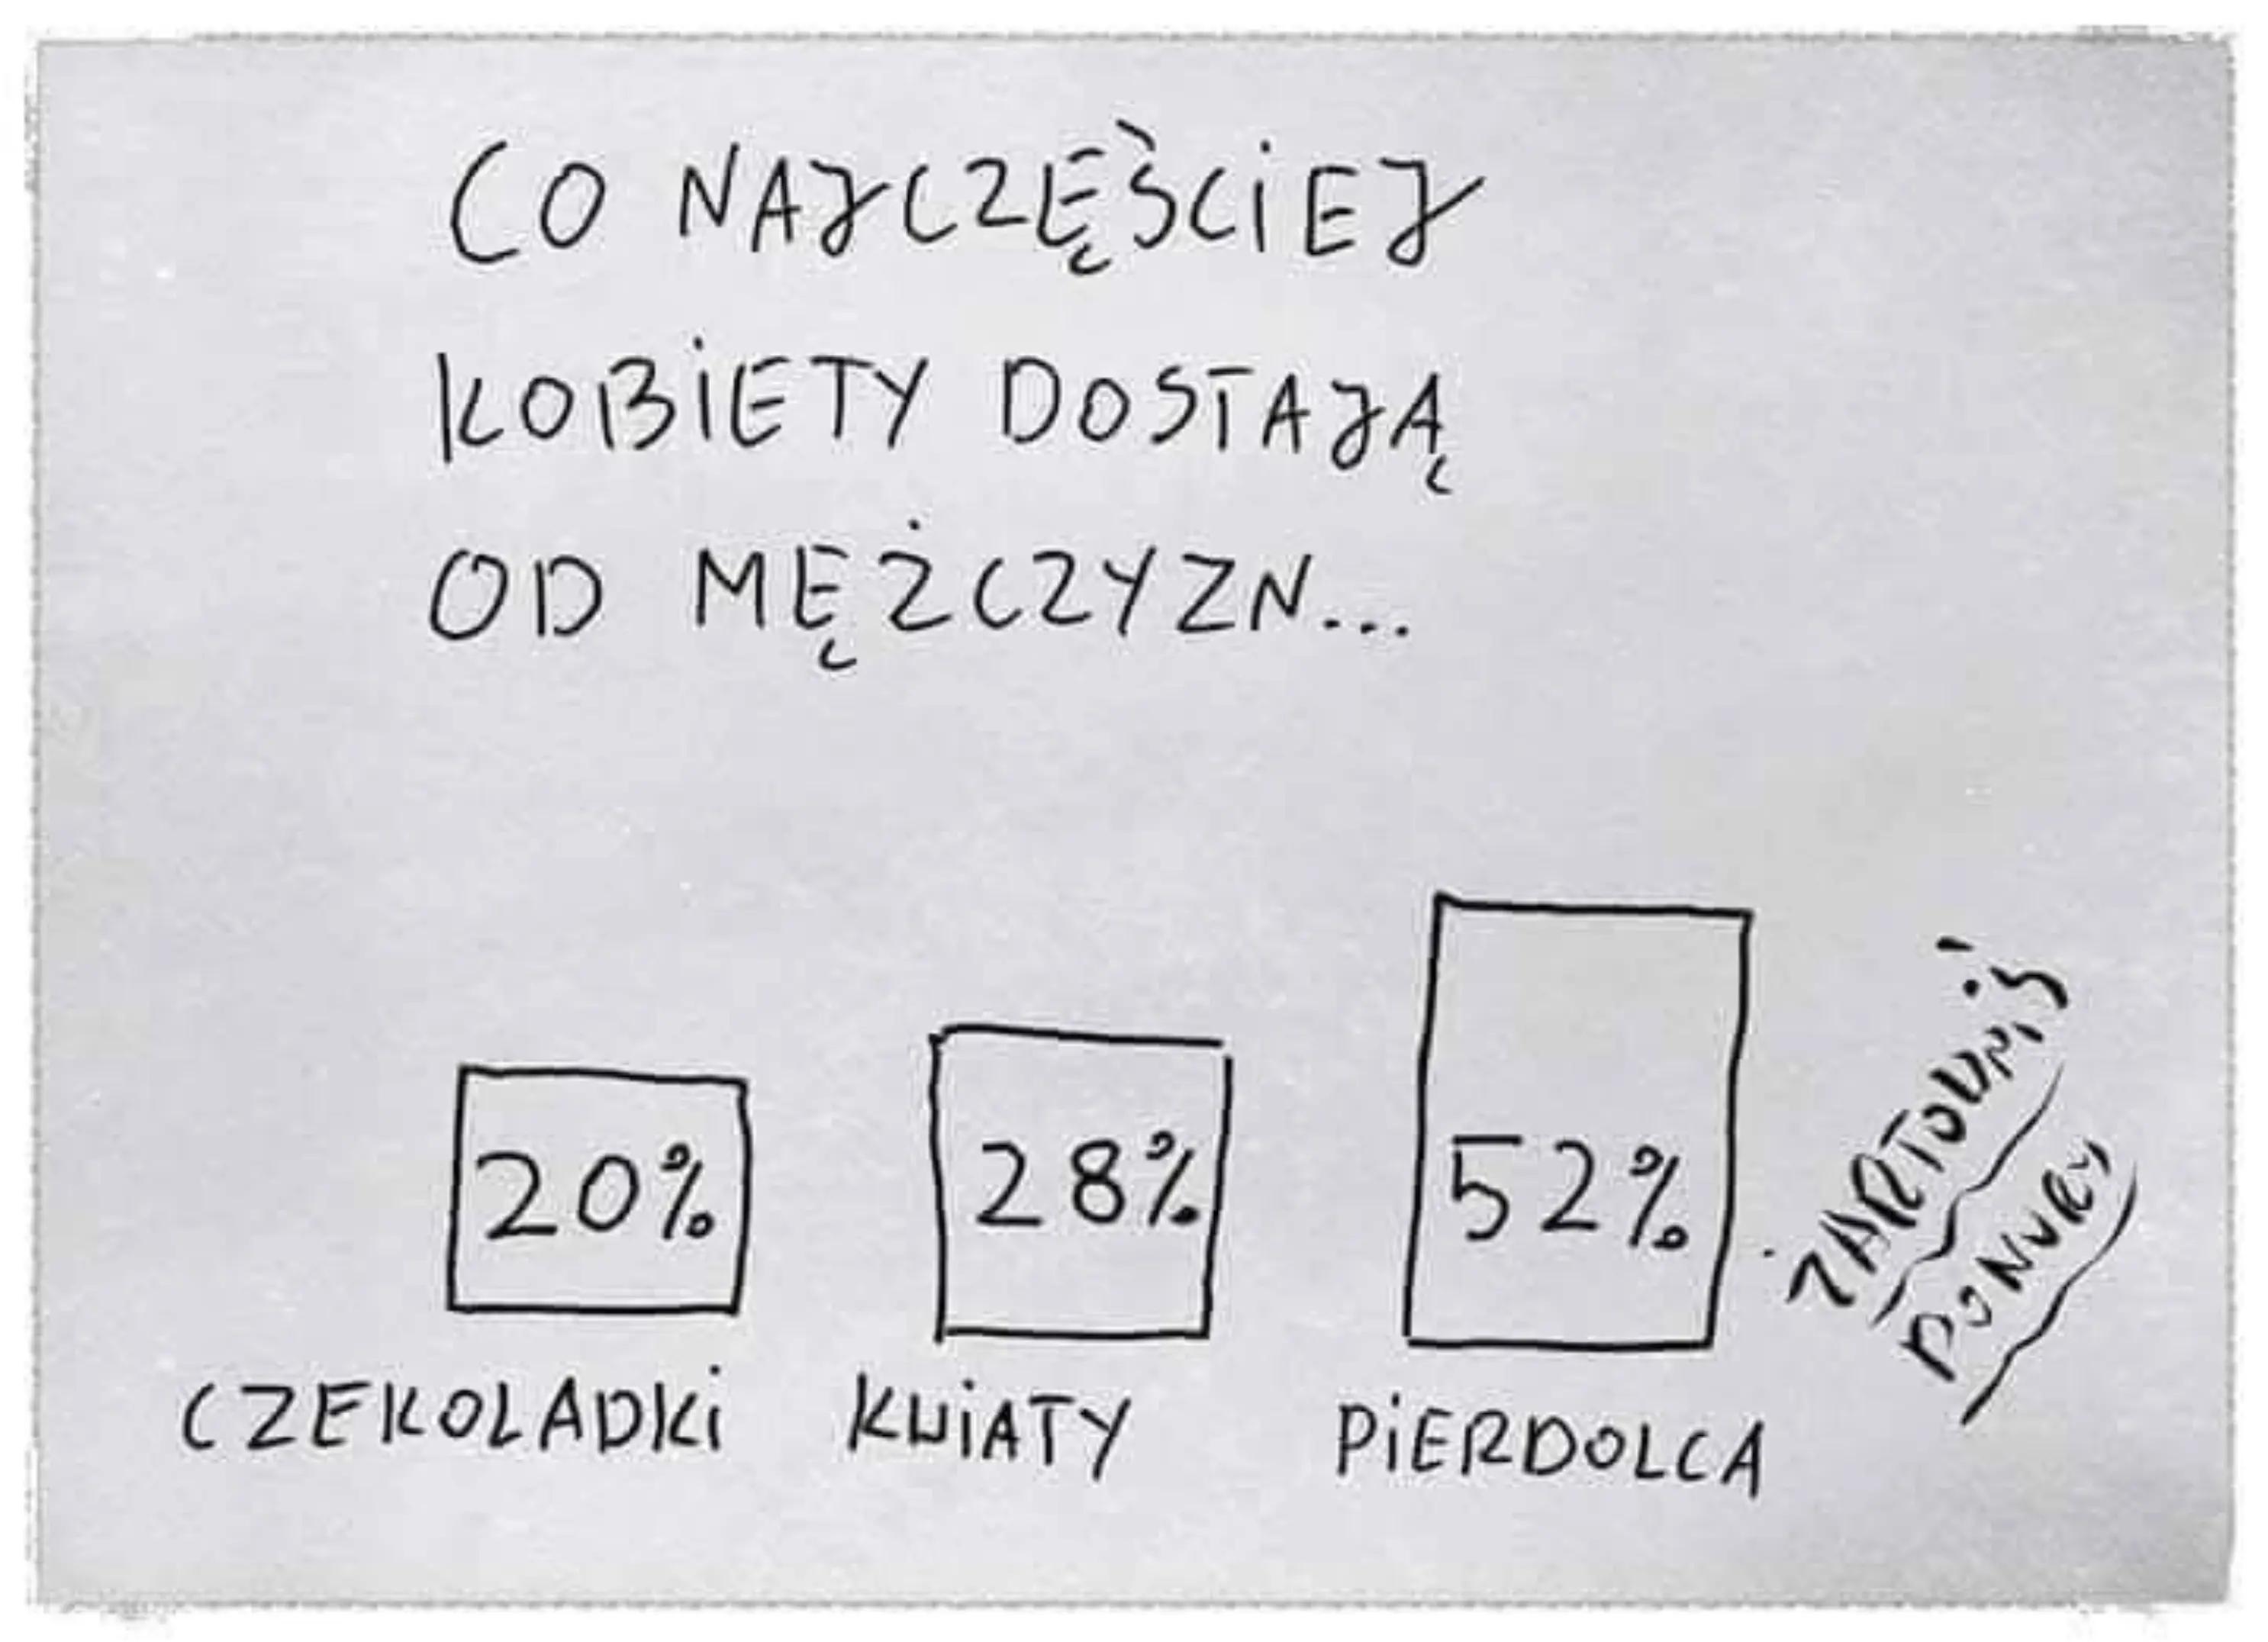 CO NAJCZĘŚCIEJ
KOBIETY DOSTAJĄ
OD MĘŻCZYZN...
20%
28%
52%
CZEKOLADKI
KWIATY
PIERDOLCA
ŻARTOWNIŚ
PONURY